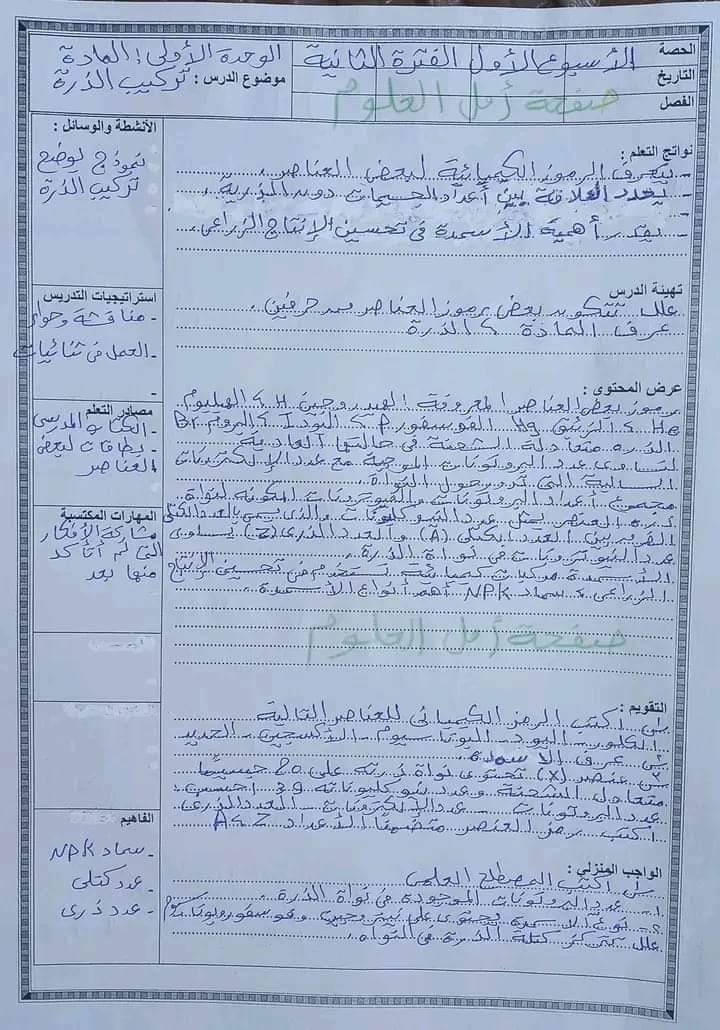 الحصة
التاريخ
الفصل
الأسبوع الأول الفترة الثانية
الوحدة الأولى: المادة
موضوع الدرس: تركيب الذرة
صفحة أمل العلوم
نواتج التعلم :
- يتعرف الرموز الكيميائية لبعض العناصر.
- يحدد العلاقة بين أعداد الجسيمات دون الذرية.
-
- يقدر أهمية الأسمدة في تحسين الإنتاج الزراعي.
تهيئة الدرس
علل تتكون بعض رموز العناصر من حرفين.
عرف المادة، الذرة
عرض المحتوى :
رموز بعض العناصر المعروفة الهيدروجين H، الهيليوم
He، الزئبق Hg، الفوسفور P، اليود I، البروم Br
الذرة متعادلة الشحنة في حالتها العادية
لتساوى عدد البروتونات الموجبة مع عدد الإلكترونات
السالبة التي تدور حول النواة.
مجموع أعداد البروتونات والنيوترونات المكونة لنواة
ذرة العنصر يمثل عدد النيوكلونات والذى يسمى بالعدد الكتلى
الفرق بين العدد الكتلى (A) والعدد الذرى (Z) يساوى
عدد النيوترونات فى نواة الذرة.
الأسمدة مركبات كيميائية تستخدم فى تحسين الإنتاج
الزراعى، سماد NPK أهم أنواع الأسمدة.
صفحة أمل العلوم
التقويم :
س١ اكتب الرمز الكيميائى للعناصر التالية
الكلور - اليود - البوتاسيوم - الأكسجين - الحديد
س٢ عرف الأسمدة.
س٣ عنصر (X) تحتوى نواة ذرته على 20 جسيمًا
متعادل الشحنة وعدد نيوكلوناته 39 احسب:
عدد البروتونات - عدد الإلكترونات - العدد الذرى
اكتب رمز العنصر متضمنًا الأعداد A، Z
الواجب المنزلي :
س١ اكتب المصطلح العلمى
١- عدد البروتونات الموجودة فى نواة الذرة.
٢- نوع الأسمدة يحتوى على نيتروجين وفوسفور وبوتاسيوم
علل تتركز كتلة الذرة فى النواة.
الأنشطة والوسائل :
نموذج يوضح
تركيب الذرة
استراتيجيات التدريس
- مناقشة وحوار
- العمل فى ثنائيات
-
مصادر التعلم
- الكتاب المدرسى
- بطاقات لبعض
العناصر
المهارات المكتسبة
مشاركة الأفكار
التى لم أتأكد
منها بعد
المفاهيم
- سماد NPK
- عدد كتلى
- عدد ذرى